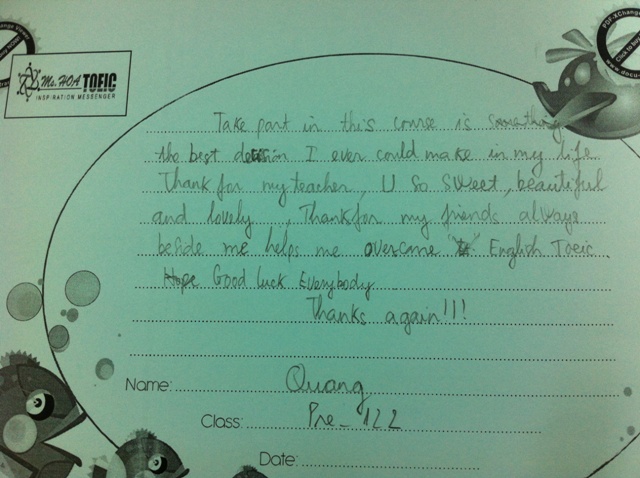 Ms. HOA TOEIC
INSPIRATION MESSENGER
PDF-XChange
Click to buy
www.docu
Take part in this course is something
the best decision I ever could make in my life
Thank for my teacher, U so sweet, beautiful
and lovely, Thank for my friends always
beside me helps me overcame English Toeic.
Hope Good luck Everybody
Thanks again!!!
Name: Quang
Class: Pre_122
Date: